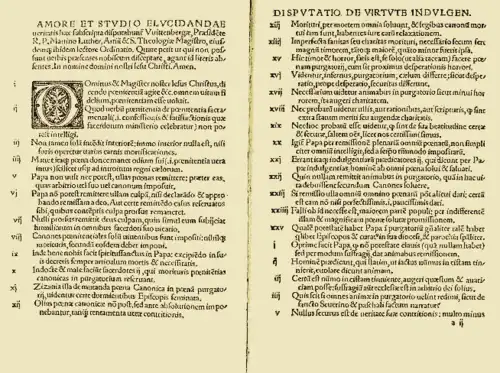 AMORE ET STVDIO ELVCIDANDAE
ueritatis hæc subscripta disputabunt̃ Vuittenbergæ, Præsidẽte
R. P. Martino Luther, Artiũ & S. Theologiæ Magistro, eius-
dem ibidem lectore Ordinario. Quare petit ut qui non pos-
sunt uerbis præsentes nobiscum disceptare, agant id literis ab-
sentes. In nomine domini nostri Iesu Christi. Amen.
i DOminus & Magister noster Iesus Christus, di-
cendo pœnitentiã agite &c̃. omnem uitam fi
delium, pœnitentiam esse uoluit.
ij Quod uerbũ pœnitentia de pœnitentia sacra-
mentali (i. confessiois & satisfactionis quæ
sacerdotum ministerio celebratur) non po-
test intelligi.
iij Non tamen solã intẽdit interiorẽ: immo interior nulla est, nisi
foris operetur uarias carnis mortificationes.
iiij Manet itaq; pœna donec manet odium sui (.i. pœnitentia uera
intus) scilicet usq; ad introitum regni cælorum.
v Papa non uult nec potest, ullas pœnas remittere: præter eas,
quas arbitrio uel suo uel canonum imposuit.
vj Papa nõ potest remittere ullam culpã, nisi declarãdo & appro-
bando remissam a deo. Aut certe remittẽdo casus reseruatos
sibi, quibus contẽptis culpa prorsus remaneret.
vij Nulli prorsus remittit deus culpam, quin simul eum subijciat
humiliatum in omnibus sacerdoti suo uicario.
viij Canones pœnitentiales solũ uiuentibus sunt impositi: nihilq;
morituris, secundũ eosdem debet imponi.
ix Inde bene nobis facit spiritussanctus in Papa: excipiẽdo in su-
is decretis semper articulum mortis & necessitatis.
x Indocte & male faciũt sacerdotes ij, qui morituris pœnitẽtias
canonicas in purgatorium reseruant.
xj Zizania illa de mutanda pœna Canonica in pœnã purgato-
rij, uidentur certe dormientibus Episcopis seminata.
xij Olim pœnæ canonicæ nõ post, sed ante absolutionem im po-
nebantur, tanq̃ tentamenta ueræ contritionis.
DISPVTATIO DE VIRTVTE INDVLGEN.
xiij Morituri, per mortem omnia soluunt, & legibus canonũ mor-
tui iam sunt, habentes iure earũ relaxationem.
xiiij Imperfecta sanitas seu charitas morituri, necessario secum fert
magnũ timorẽ, tãtoq; maiorẽ, quãto minor fuerit ipsa.
xv Hic timor & horror, satis est, se solo (ut alia taceã) facere pœ-
nam purgatorij, cum sit proximus desperationis horrori.
xvj Videntur, infernus, purgatorium, cælum differre, sicut despe-
ratio, prope desperatio, securitas differunt.
xvij Necessarium uidetur animabus in purgatorio sicut minui hor-
rorem, ita augeri charitatem.
xviij Nec probatũ uidetur ullis, aut rationibus, aut scripturis, q̃ sint
extra statum meriti seu augendæ charitatis.
xix Nec hoc probatũ esse uidetur, q̃ sint de sua beatitudine certæ
& securæ, saltem oẽs, licet nos certissimi simus.
xx Igit̃ Papa per remissionẽ plenariã omniũ pœnarũ, non simpli
citer omniũ intelligit, sed a seipso tãtummodo impositarũ.
xxj Errant itaq; indulgentiarũ prædicatores ij, qui dicunt per Pa-
pæ indulgentias, hominẽ ab omni pœna solui & saluari.
xxij Quin nullam remittit animabus in purgatorio, quam in hac ui
ta debuissent secundum Canones soluere.
xxiij Si remissio ulla omniũ omnino pœnarũ põt alicui dari, certũ
est eam nõ nisi perfectissimis .i. paucissimis dari.
xxiiij Falli ob id necesse est, maiorem partẽ populi: per indifferentẽ
illam & magnificam pœnæ solutæ promissionem.
xxv Qualẽ potestatẽ habet Papa ĩ purgatoriũ gñaliter talẽ habet
quilibet Episcopus & curatus in sua diocesi, & parochia spãliter.
i Optime facit Papa, q̃ nõ potestate clauis (quã nullam habet)
sed per modum suffragij, dat animabus remissionem.
ij Hominẽ prædicant, qui statim, ut iactus nũmus in cistam tin-
nierit, euolare dicunt animam.
iij Certũ est nũmo in cistam tinniente, augeri quæstum & auariti
am posse: suffragiũ aũt ecclesiæ est in arbitrio dei solius.
iiij Quis scit si omnes animæ in purgatorio uelint redimi, sicut de
sancto Seuerino & paschali factum narratur?
v Nullus securus est de ueritate suæ contritionis: multo minus
a ij